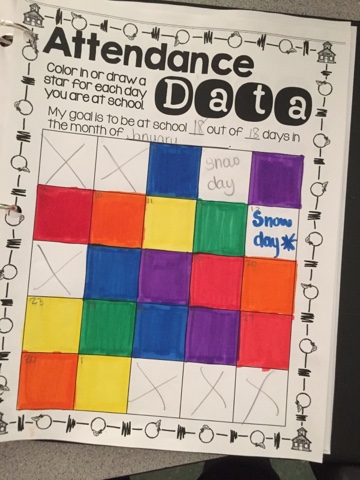 Attendance
Color in or draw a
star for each day
you are at school.
Data
My goal is to be at school 18 out of 18 days in
the month of January
snow
day
Snow
day*
23